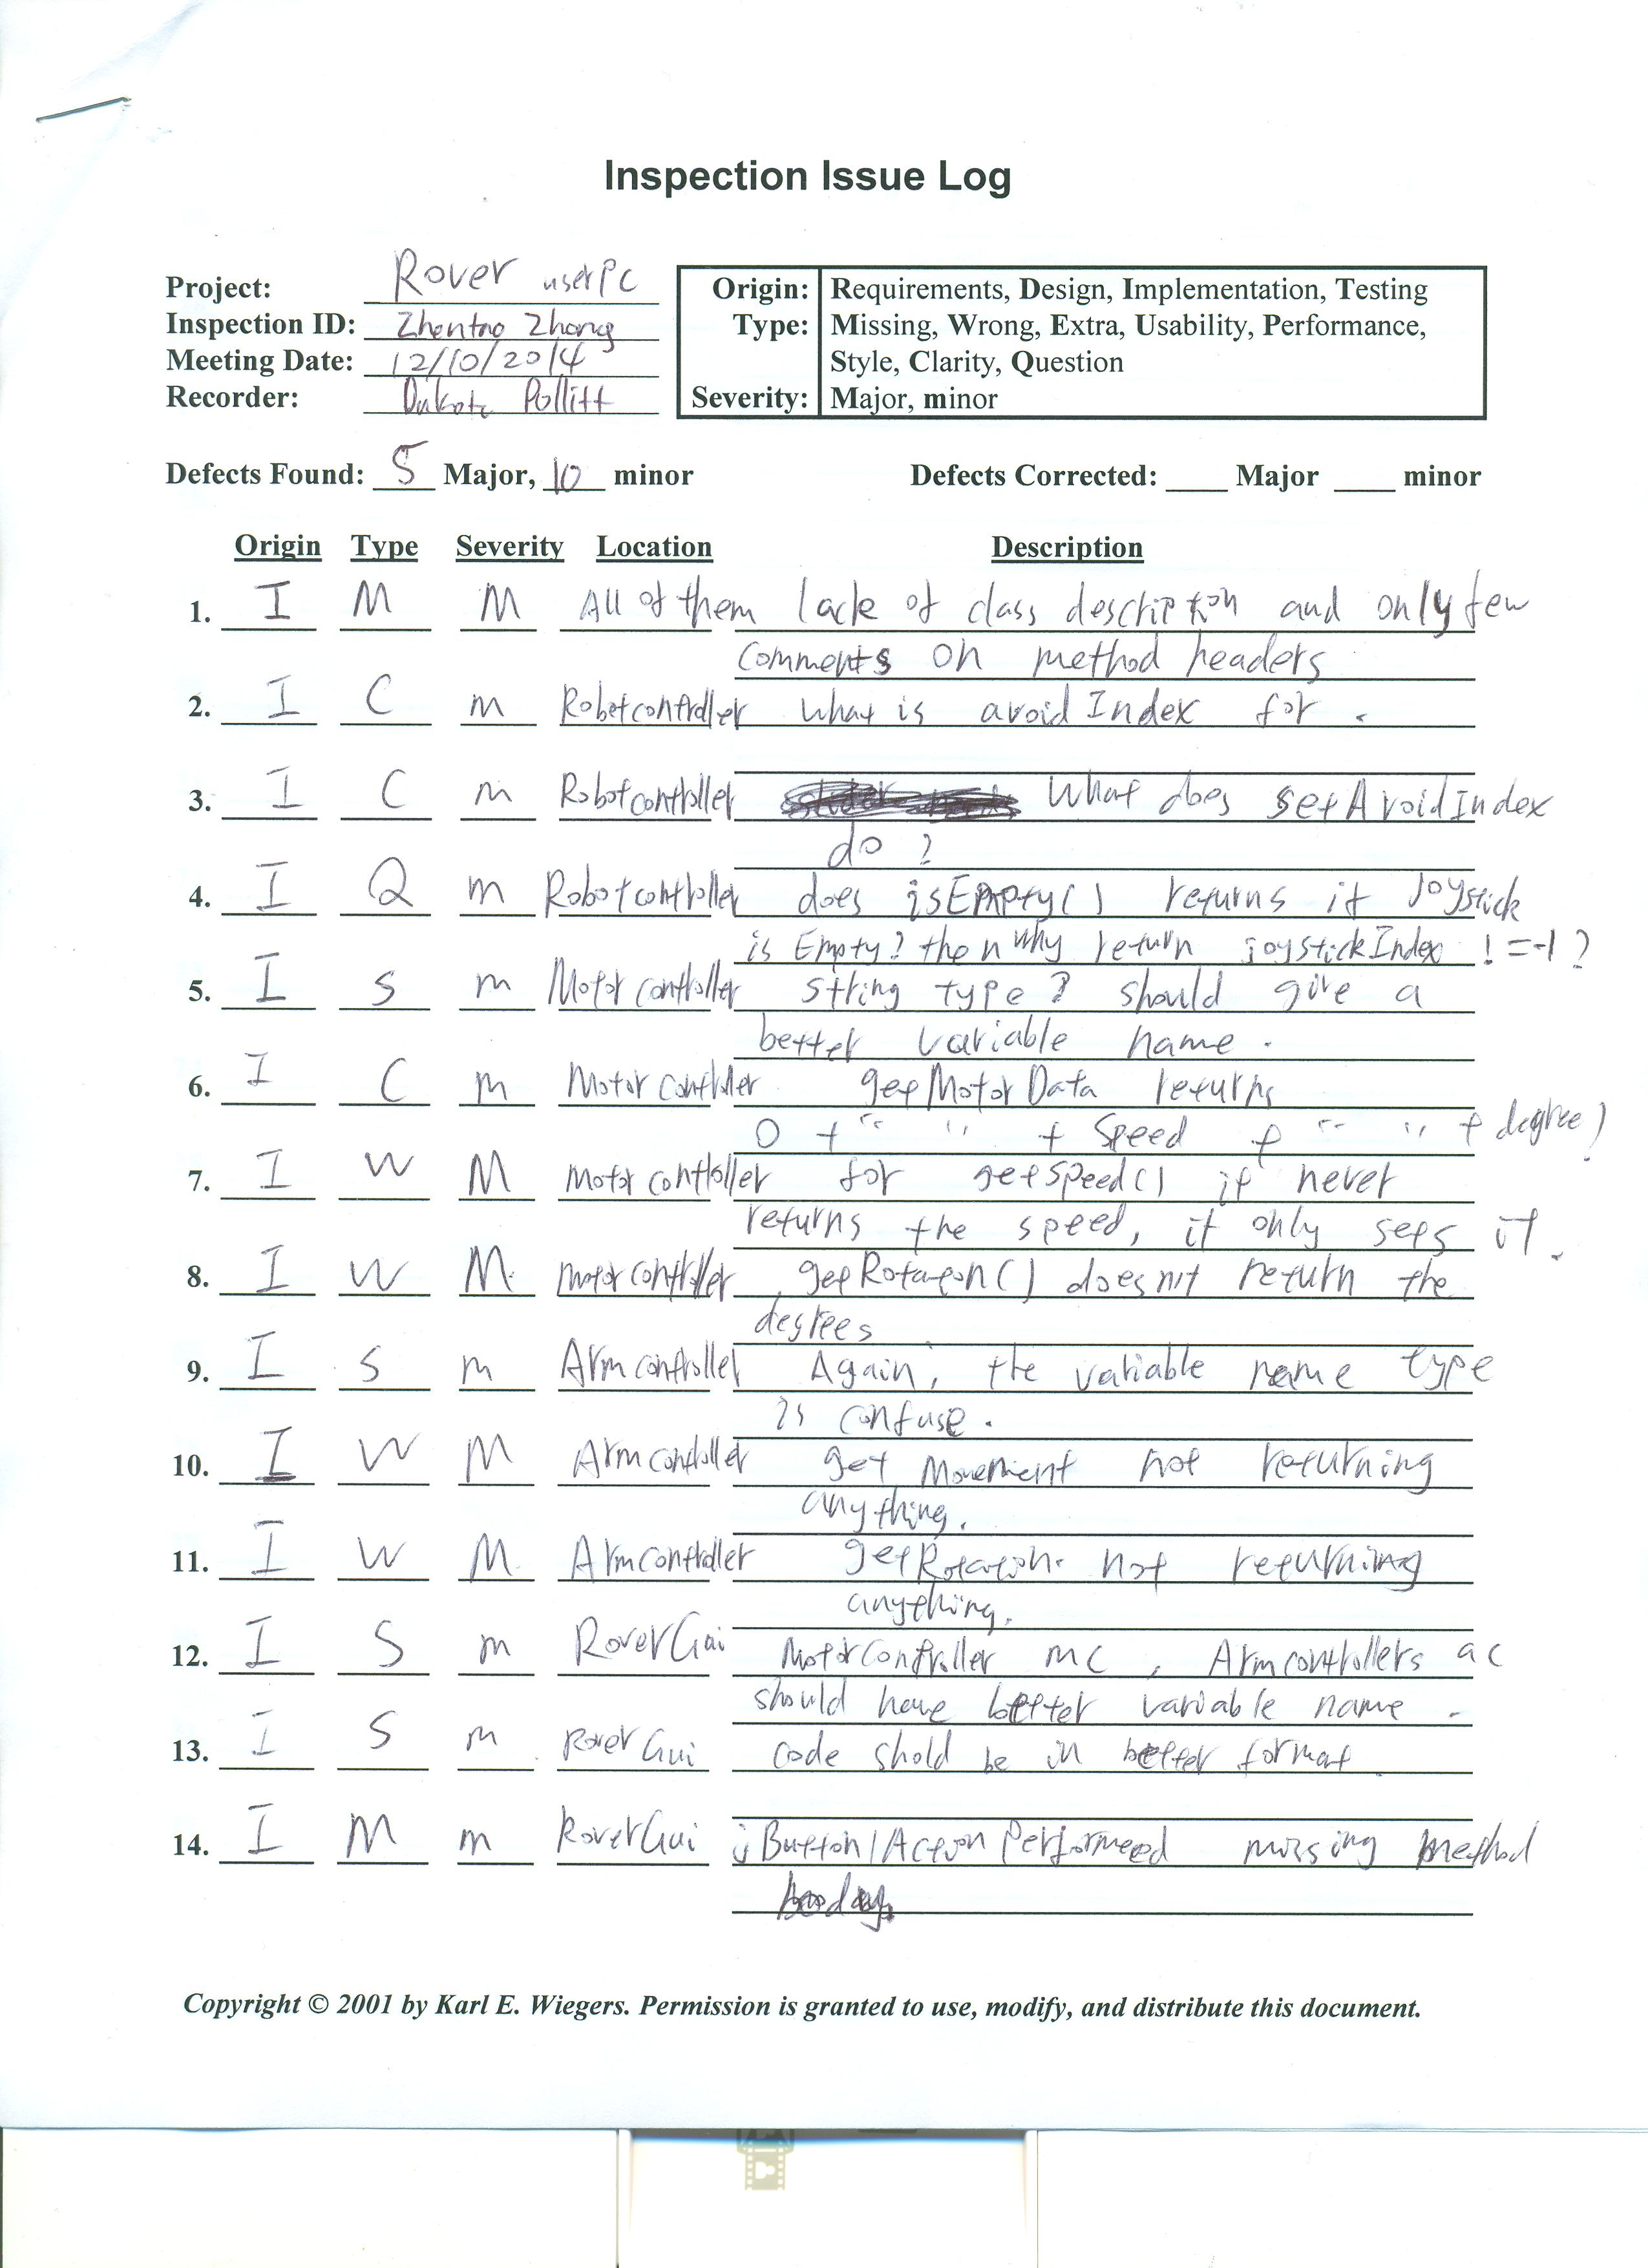 Inspection Issue Log
Project: Rover userPC
Inspection ID: Zhentao Zhong
Meeting Date: 12/10/2014
Recorder: Dakota Pollitt
Origin: Requirements, Design, Implementation, Testing
Type: Missing, Wrong, Extra, Usability, Performance,
Style, Clarity, Question
Severity: Major, minor
Defects Found: 5 Major, 10 minor Defects Corrected: ____ Major ____ minor
Origin Type Severity Location Description
1. I M M All of them lack of class description and only few
comments on method headers
2. I C m Robotcontroller what is avoidIndex for .
3. I C m Robotcontroller What does setAvoidIndex
do ?
4. I Q m Robotcontroller does isEmpty() returns if Joystick
is Empty? then why return joystickIndex != -1 ?
5. I S m Motorcontroller string type ? should give a
better variable name .
6. I C m Motorcontroller getMotorData returns
0 + " " + speed + " " + degree)
7. I W M Motorcontroller for getspeed() it never
returns the speed, it only sets it.
8. I W M motorcontroller getRotation() does not return the
degrees
9. I S m Armcontroller Again, the variable name type
is confuse .
10. I W M Armcontroller get Movement not returning
anything.
11. I W M Armcontroller getRotation not returning
anything.
12. I S m RoverGui MotorController mc , Armcontrollers ac
should have better variable name .
13. I S m RoverGui code shold be in better format
14. I M m RoverGui jButton1ActionPerformeed missing method
body.
Copyright © 2001 by Karl E. Wiegers. Permission is granted to use, modify, and distribute this document.